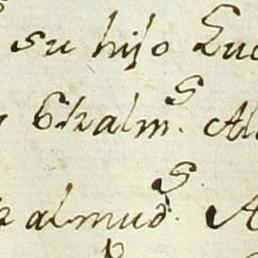 su hijo Luc
6½ alm.s Al
almud.s A